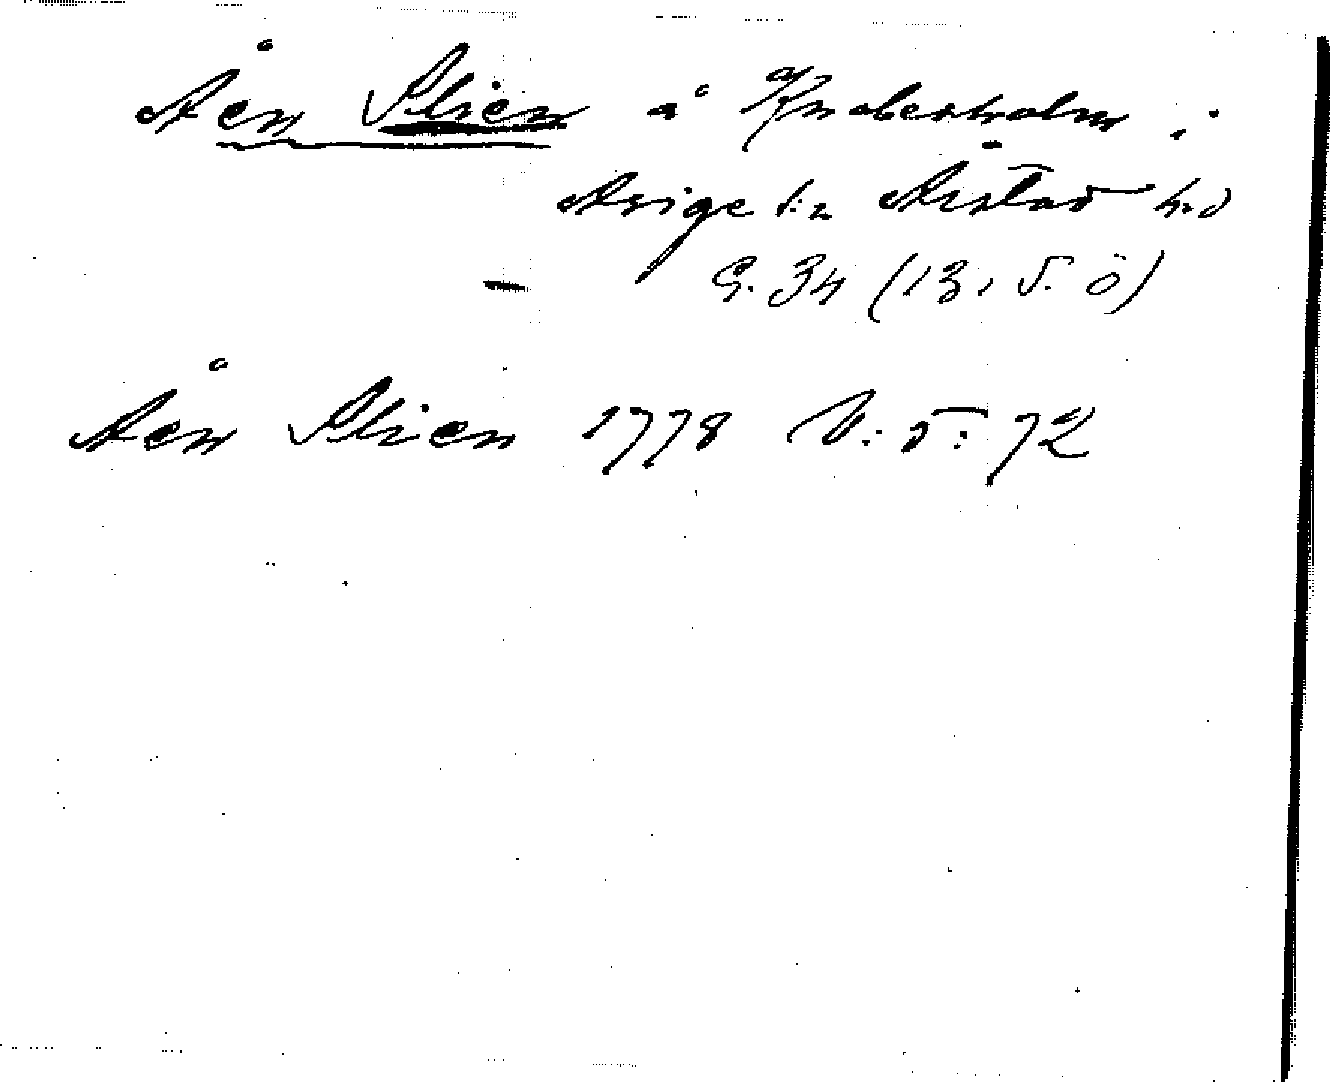 Åen Slien å Knobesholm i
Asige s:n Årstad h.d
G. 34 (13, v. ö)
Åen Slien 1778 V: d: 72